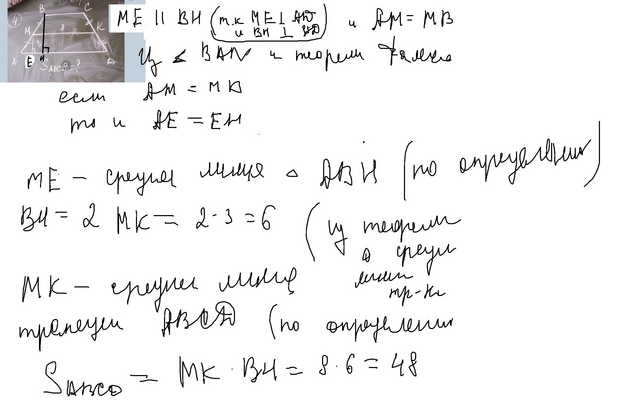 4)
B
C
M
8
K
3
A E H D
S ABCD = ?
ME || BH (т.к ME ⊥ AD и BH ⊥ AD) и AM = MB
Из ∠ BAH и теоремы Фалеса
если AM = MB
то и AE = EH
ME – средняя линия △ ABH (по определению)
BH = 2 MK = 2·3 = 6 (из теоремы о средн линии тр-ка
MK – средняя линия
трапеции ABCD (по определению
S ABCD = MK · BH = 8·6 = 48